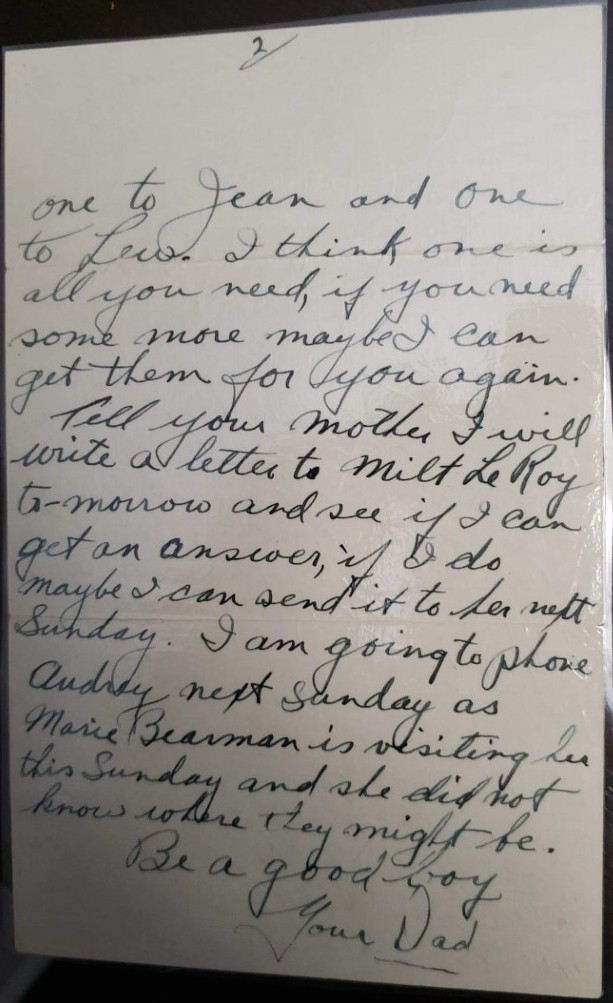 2/
one to Jean and one
to Lew. I think one is
all you need, if you need
some more maybe I can
get them for you again.
Tell your mother I will
write a letter to Milt LeRoy
to-morrow and see if I can
get an answer, if I do
maybe I can send it to her next
Sunday. I am going to phone
Audrey next Sunday as
Marie Bearman is visiting her
this Sunday and she did not
know where they might be.
Be a good boy
Your Dad